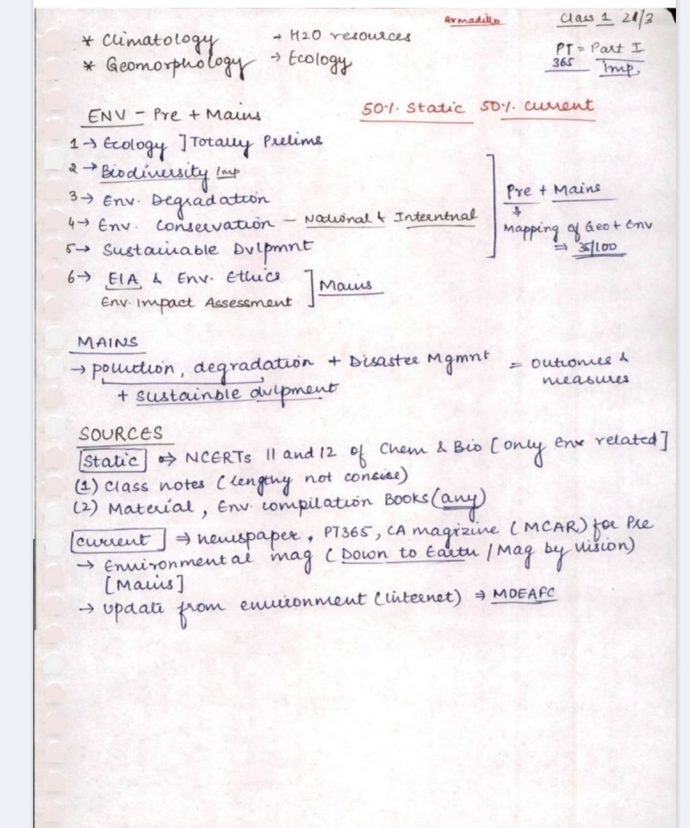 Armadillo
Class 1 21/3
* Climatology → H2O resources
* Geomorphology → Ecology
PT = Part I
365 Imp.
ENV - Pre + Mains
50% Static 50% Current
1 → Ecology ] Totally Prelims
2 → Biodiversity Imp
3 → Env. Degradation
4 → Env. Conservation - National & Interntnal
5 → Sustainable Dvlpmnt
Pre + Mains
↓
Mapping of Geo + Env
⇒ 35/100
6 → EIA & Env. Ethics ] Mains
Env. Impact Assessment
MAINS
→ pollution, degradation + Disaster Mgmnt = outcomes & measures
+ sustainble dvlpment
SOURCES
Static ⇒ NCERTs 11 and 12 of Chem & Bio [only env related]
(1) Class notes (lengthy not consise)
(2) Material, Env. compilation Books (any)
Current ⇒ newspaper, PT365, CA magizine (MCAR) for Pre
→ Environmental mag (Down to Earth / Mag by vision)
[Mains]
→ update from environment (internet) ⇒ MOEAFC